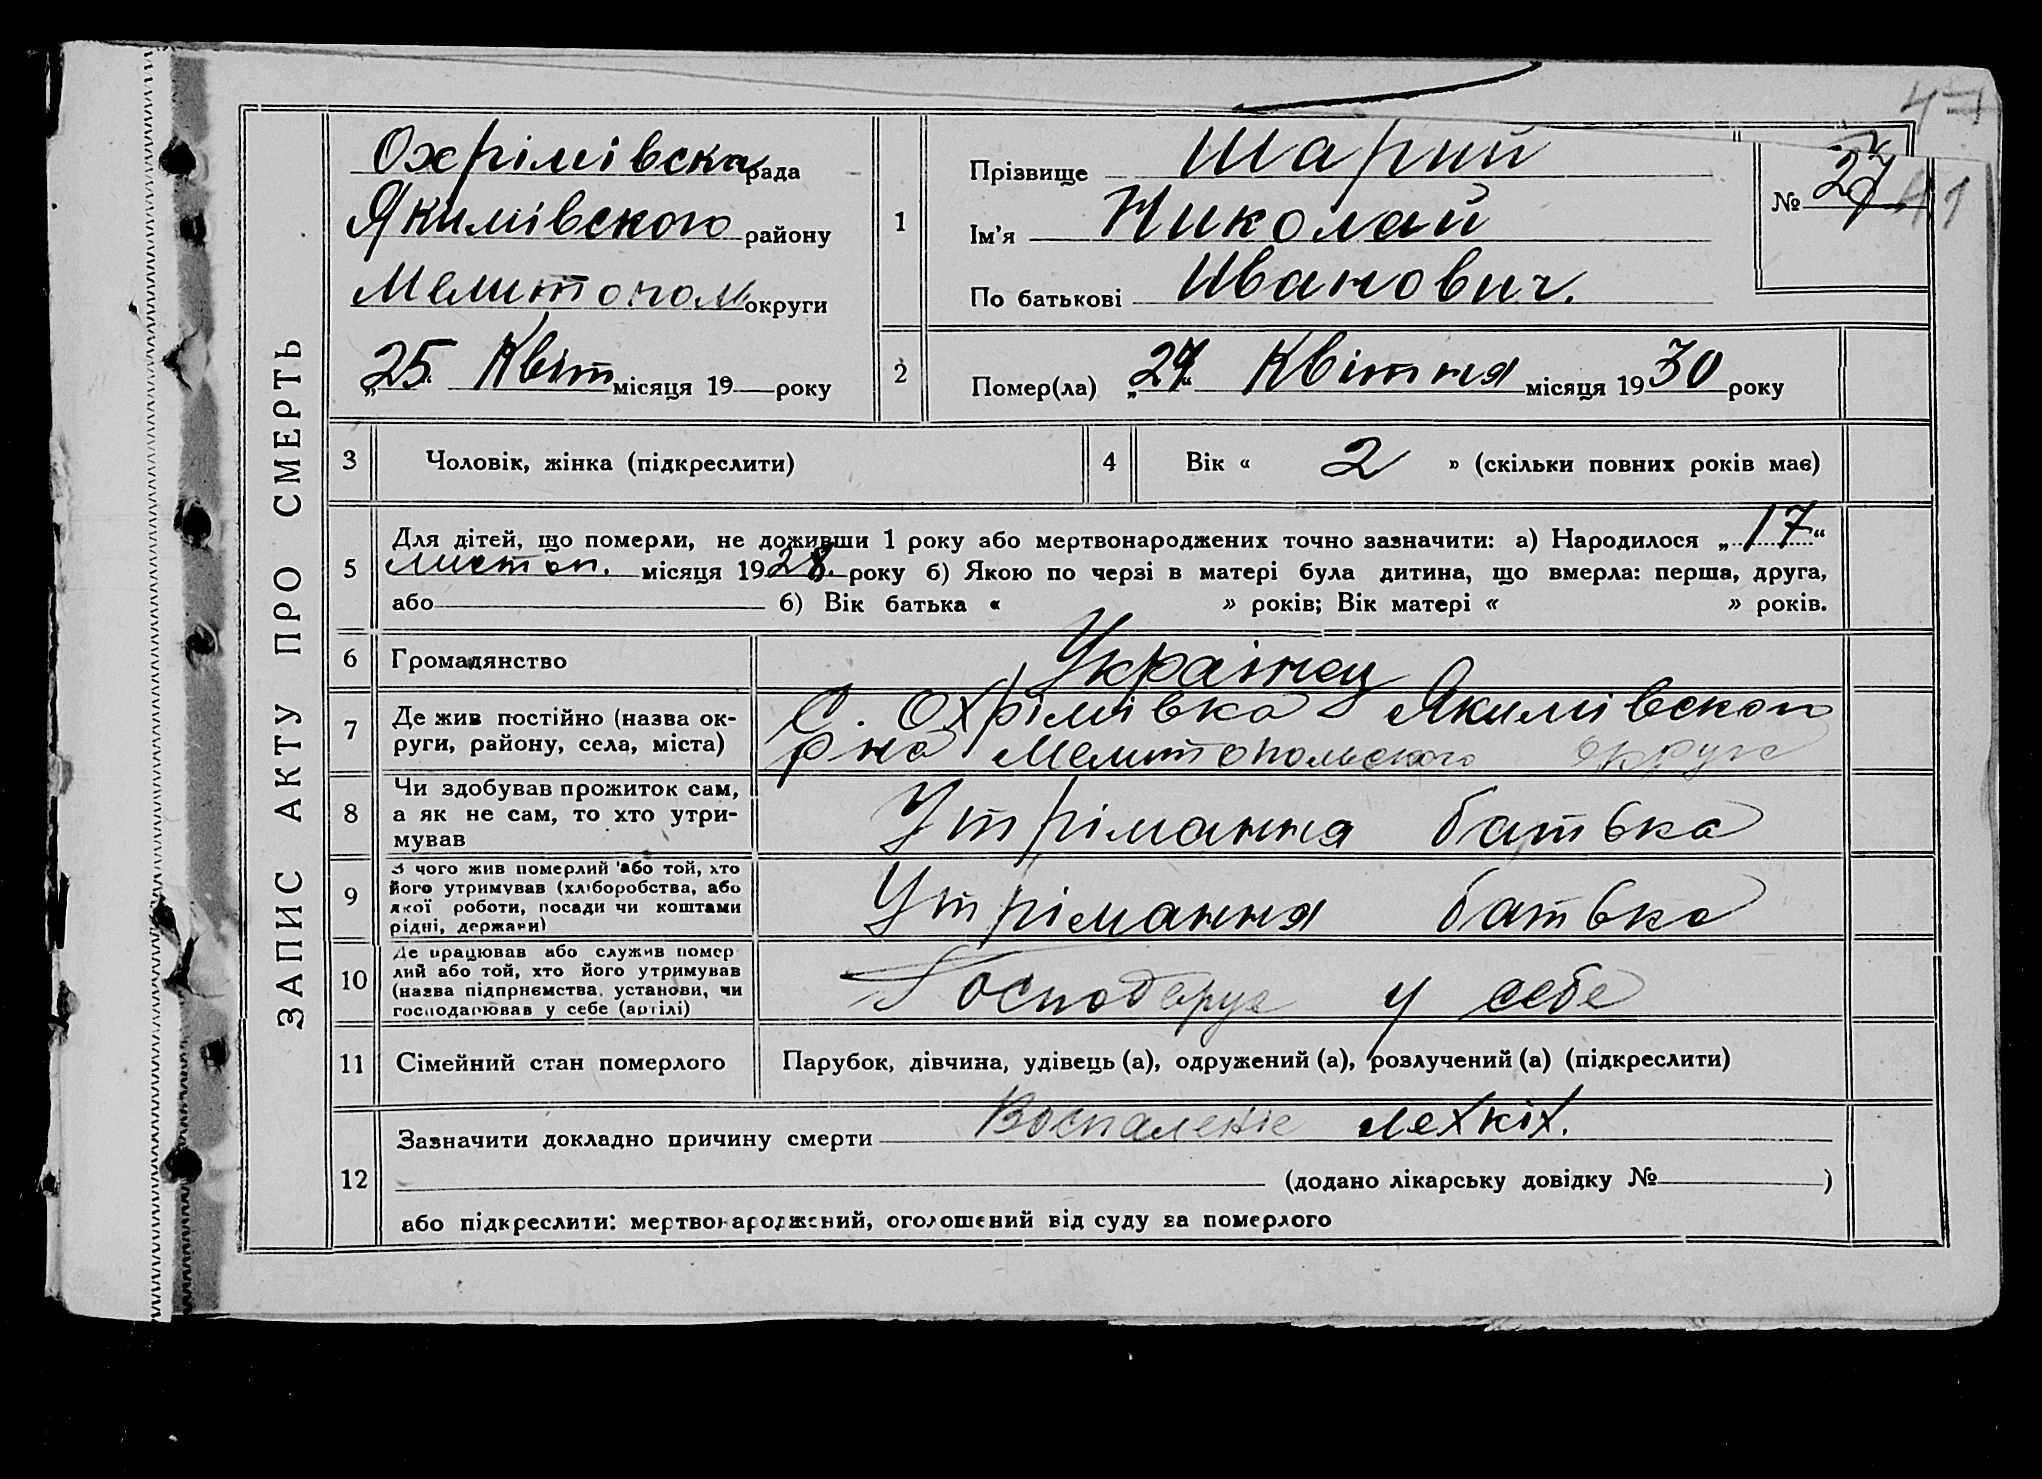 47
ЗАПИС АКТУ ПРО СМЕРТЬ
Охрімівска рада
Якимівского району
Мелитопол округи
„25“ Квіт місяця 19 року
1
Прізвище Шарий
Ім'я Николай
По батькові Иванович.
№ 27
41
2
Помер(ла) „24“ Квітня місяця 1930 року
3
Чоловік, жінка (підкреслити)
4
Вік « 2 » (скільки повних років має)
5
Для дітей, що померли, не доживши 1 року або мертвонароджених точно зазначити: а) Народилося „17“
листоп. місяця 1928. року б) Якою по черзі в матері була дитина, що вмерла: перша, друга,
або б) Вік батька « » років; Вік матері « » років.
6
Громадянство
Українец
7
Де жив постійно (назва ок-
руги, району, села, міста)
С. Охрімівка Якимівского
рна Мелитопольского округа
8
Чи здобував прожиток сам,
а як не сам, то хто утри-
мував
Утрімання батька
9
З чого жив померлий або той, хто
його утримував (хліборобства, або
якої роботи, посади чи коштами
рідні, держави)
Утрімання батька
10
Де працював або служив помер
лий або той, хто його утримував
(назва підприємства, установи, чи
господарював у себе (артілі)
Господарує у себе
11
Сімейний стан померлого
Парубок, дівчина, удівець (а), одружений (а), розлучений (а) (підкреслити)
12
Зазначити докладно причину смерти Воспаленіе лехкіх.
(додано лікарську довідку № )
або підкреслити: мертвонароджений, оголошений від суду за померлого